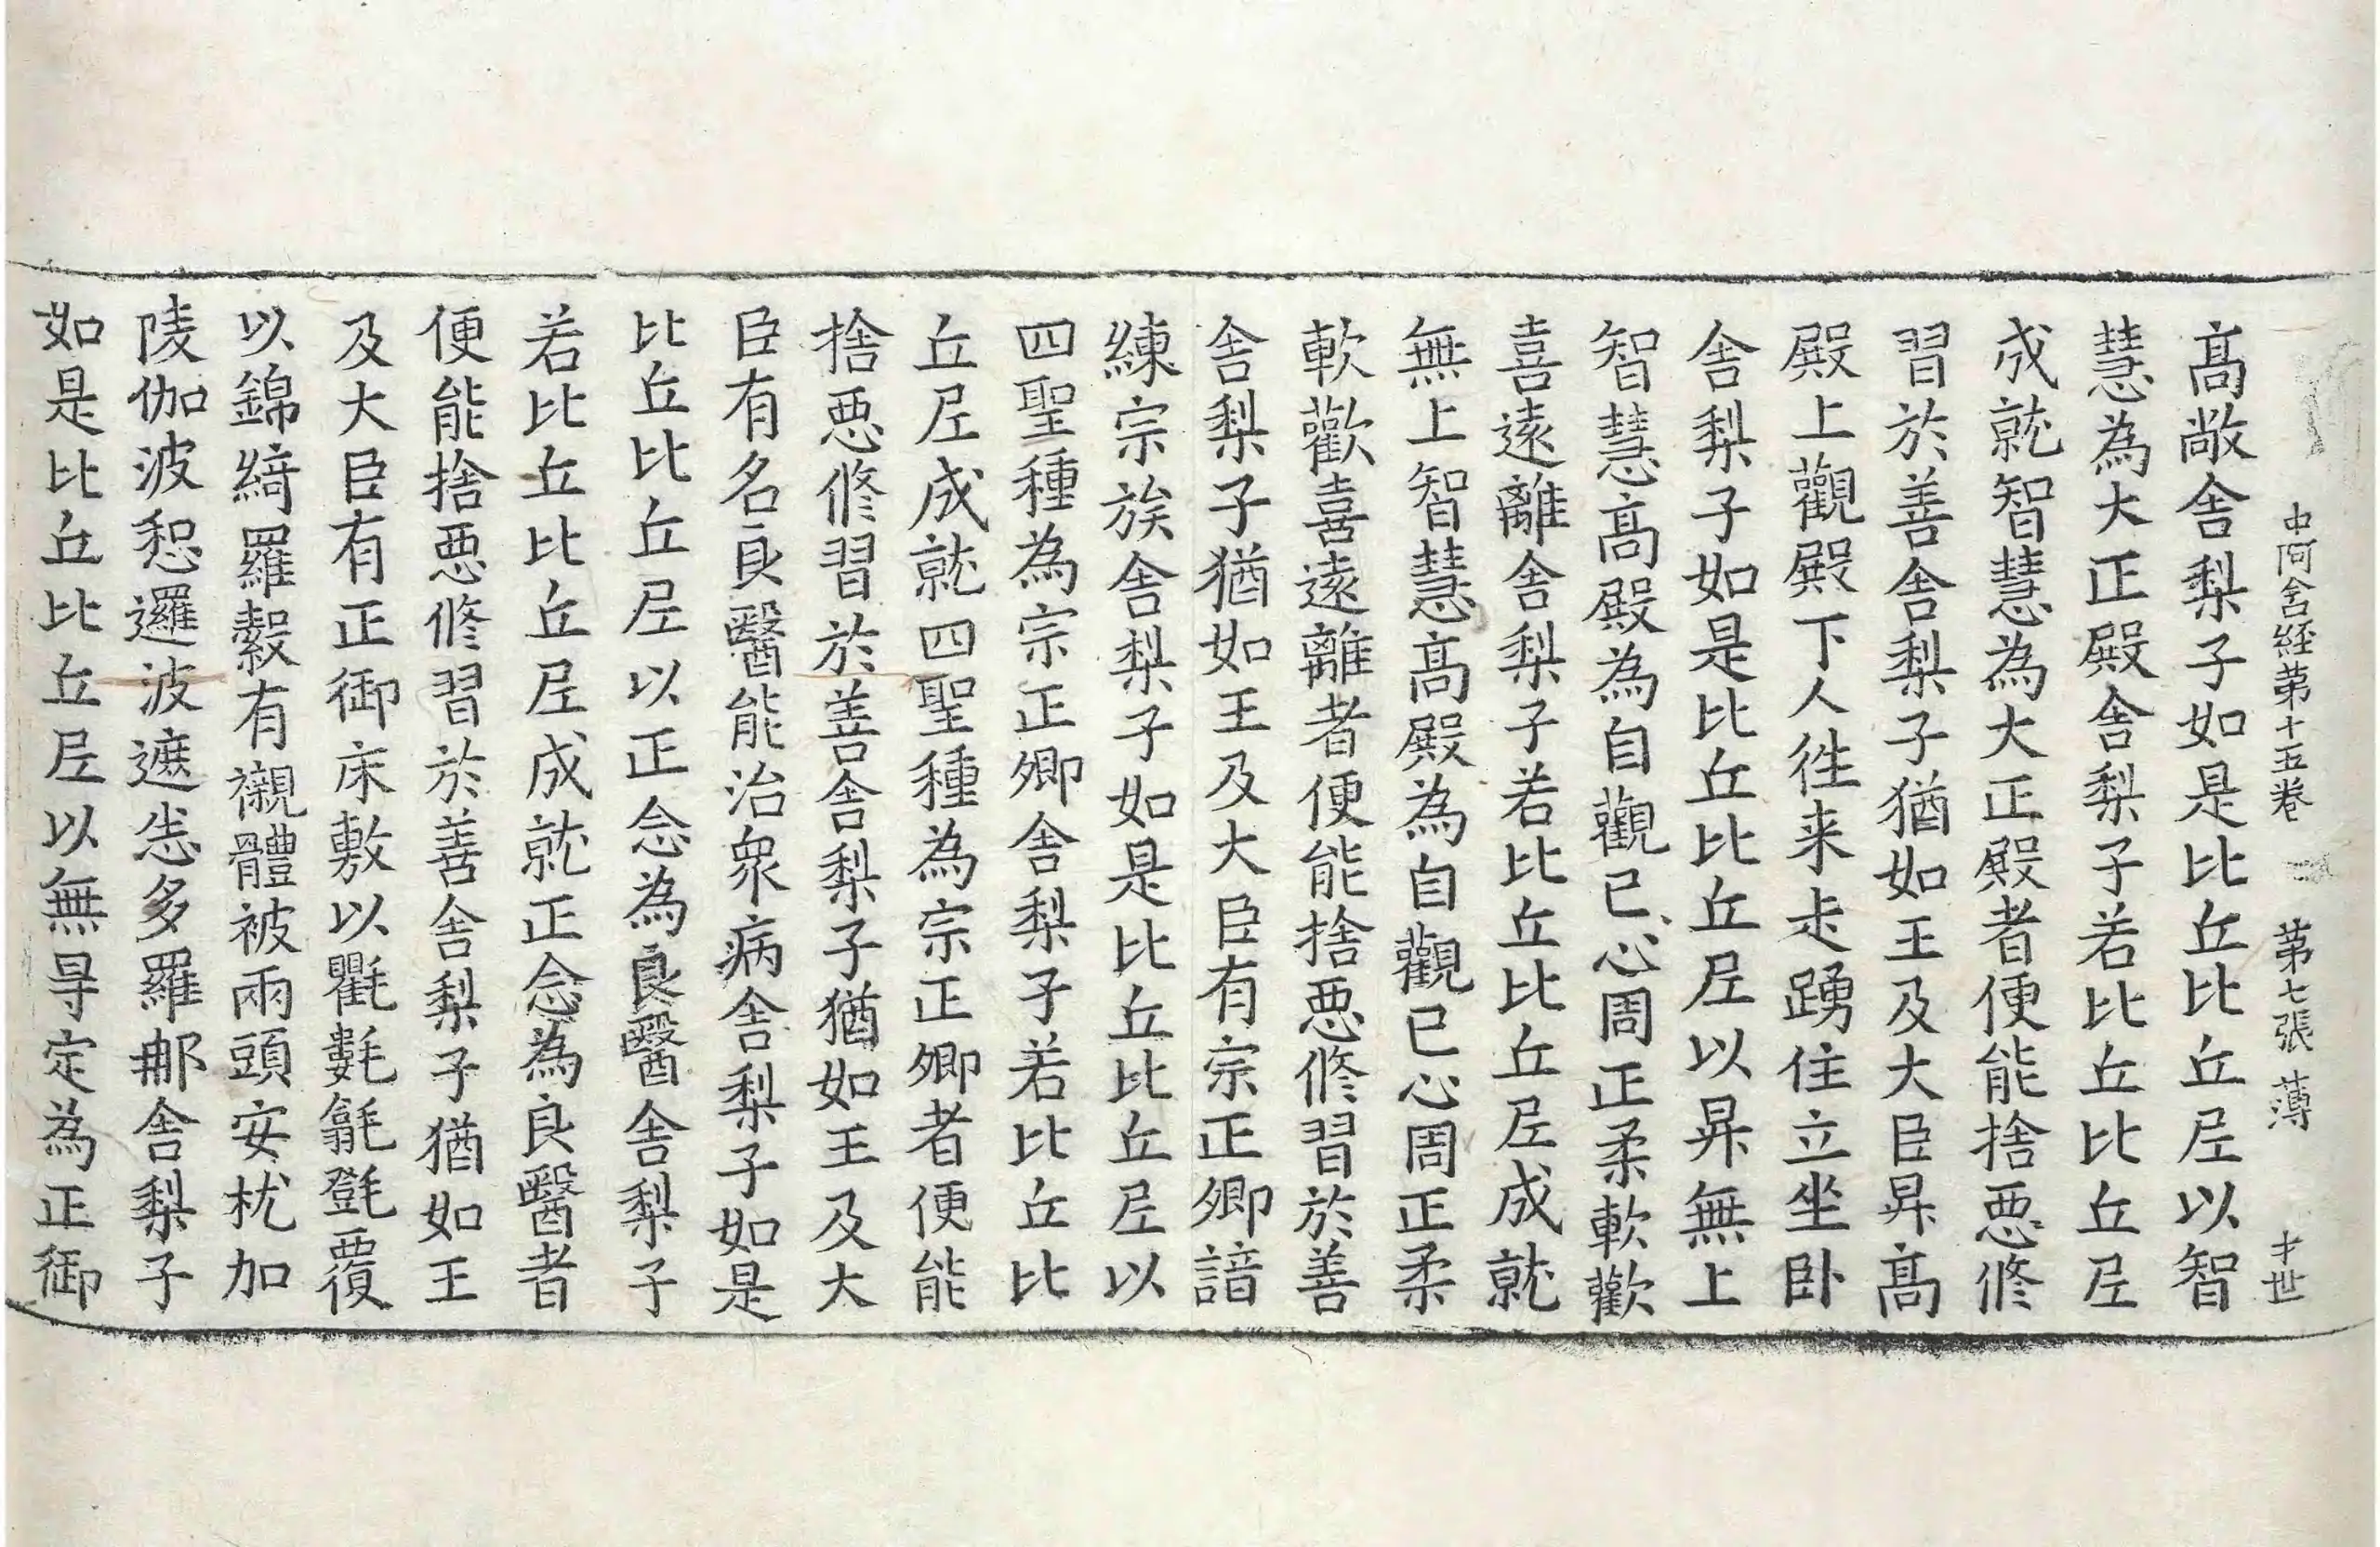 中阿含経第十五巻　第七張　薄　才世
髙敞舍梨子如是比丘比丘𡰱以智
慧為大正殿舍梨子若比丘比丘𡰱
成就智慧為大正殿者便能捨悪修
習於善舍梨子猶如王及大臣昇髙
殿上觀殿下人徃来走踴住立坐卧
舍梨子如是比丘比丘𡰱以昇無上
智慧髙殿為自觀已心周正柔軟歡
喜遠離舍梨子若比丘比丘𡰱成就
無上智慧髙殿為自觀已心周正柔
軟歡喜遠離者便能捨悪修習於善
舍梨子猶如王及大臣有宗正卿諳
練宗族舍梨子如是比丘比丘𡰱以
四聖種為宗正卿舍梨子若比丘比
丘𡰱成就四聖種為宗正卿者便能
捨悪修習於善舍梨子猶如王及大
臣有名良醫能治衆病舍梨子如是
比丘比丘𡰱以正念為良醫舍梨子
若比丘比丘𡰱成就正念為良醫者
便能捨悪修習於善舍梨子猶如王
及大臣有正御床敷以氍氀毹㲪覆
以錦綺羅縠有襯體被兩頭安枕加
陵伽波惒邏波遮悉多羅那舍梨子
如是比丘比丘𡰱以無㝵定為正御